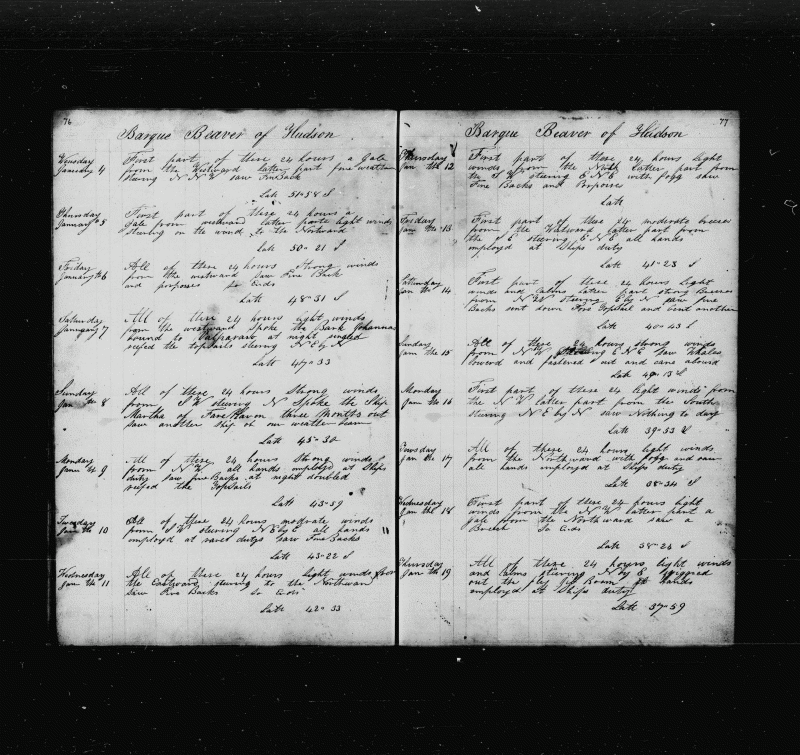 76
Barque Beaver of Hudson
Wensday First part of these 24 hours a Gale
January 4 from the Westward latter part fine weather
stering N N W saw Fin Back
Latt 51=58 S
Thursday First part of these 24 hours a
January 5 Gale from westward latter parte light winds
stering on the wind to the Norward
Latt 50-21 S
Friday All of these 24 hours Strong winds
January th 6 from the westward saw Fine Back
and porposes So Ends
Latt 48-31 S
Saturday All of these 24 hours light winds
January 7 from the westward Spoke the Bark Johannas
bound to Valparaso at night singled
reefed the topsails stering N E by N
Latt 47=33
Sunday All of these 24 hours Strong winds
Jan th 8 from stering N Spoke the Ship
Martha of Fare Haven three Months out
saw another ship of our weatter beam
Latt 45-30
Monday All of these 24 hours Strong winds
Janu th 9 from N W all hands employed at Ships
duty saw fine Backs at night doubled
reefed the Topsails
Latt 43=59
Tuesday All of these 24 hours moderate winds
Jan th 10 from stering N E by E all hands
employed at saves dutys saw Fine Backs
Latt 43-22 S
Wednesday All of these 24 hours light winds from
Jan th 11 the Eastward stering to the Northward
saw Fine Backs So Ends
Latt 42=33
77
Barque Beaver of Hudson
Thursday First part of these 24 hours light
Jan the 12 winds from the latter part from
the S W stering E N E with fogg saw
Fine Backs and Porposes
Latt
Friday First part of these 24 moderate breeses
Jan th 13 from the Westward latter part from
the S E stering E N E all hands
employed at Ships duty
Latt 41-23 S
Satturday First part of these 24 hours Light
Jan th 14 winds and Calms latter part strong Breeses
from N W stering E by N saw fine
Backs sent down Fore Topsail and bent another
Latt 40=43 S
Sunday All of these 24 hours strong winds
Jan the 15 from N W Stering E N E saw Whales
lowerd and fastened out and came abourd
Latt 40-13 S
Monday First part of these 24 light winds from
Jan th 16 the N W latter part from the South
stering N E by N saw Nothing to day
Latt 39-53 S
Tuesday All of these 24 hours light winds
Jan th 17 from the Northward with fogg and saw
all hands employed at Ships duty
Latt 38-34 S
Wednesday First part of these 24 hours light
Jan th 18 winds from the N W latter part a
gale from the Northward saw a
Breach So Ends
Latt 38-24 S
Thursday All of these 24 hours light winds
Jan th 19 and Calms stering N by E Rigged
out the fly Jib Boom all hands
employed at Ships duty
Latt 37=59